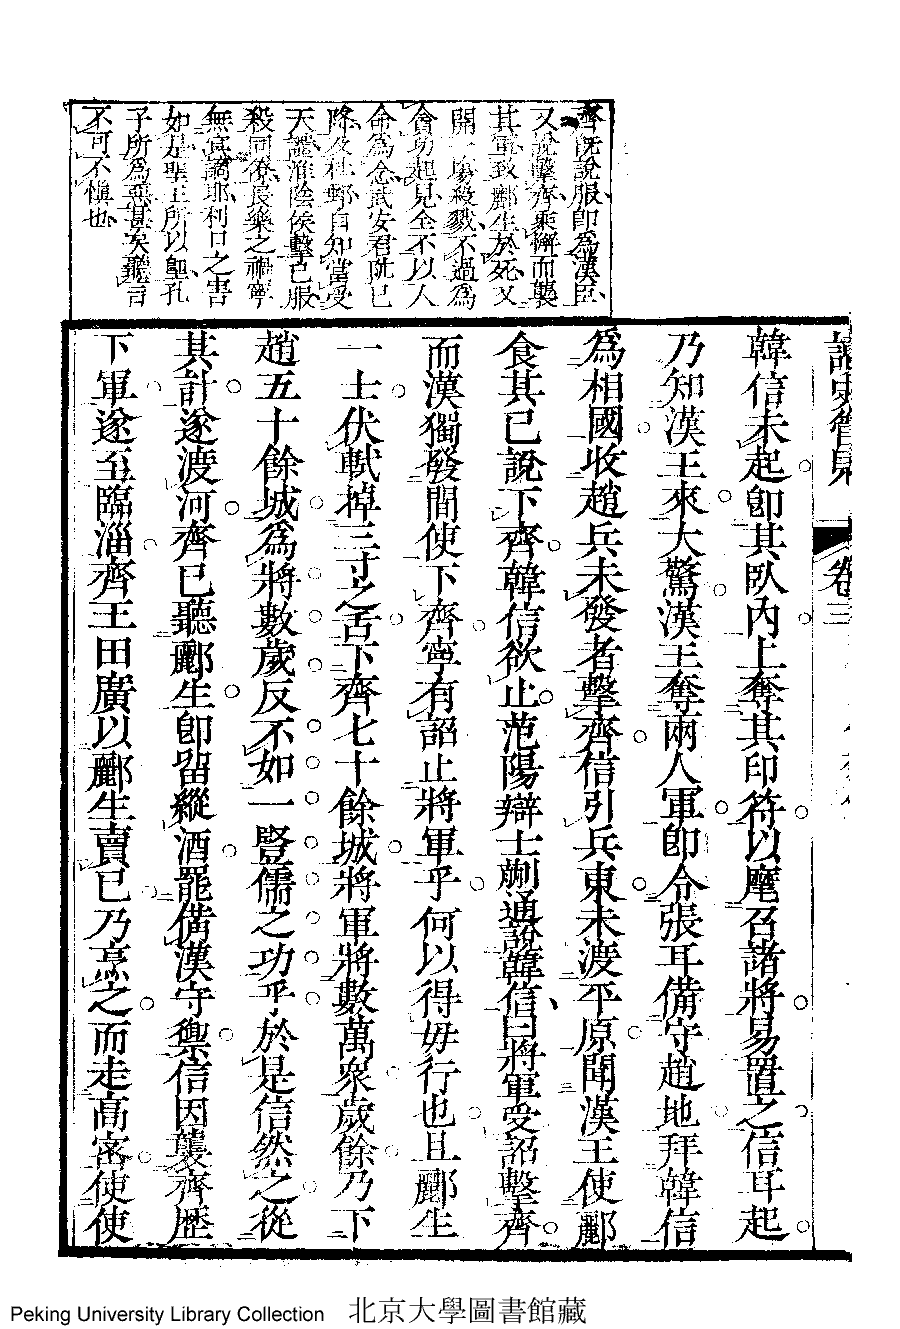 齊既說服卽爲漢臣
又說擊齊乘懈而襲
其軍致酈生於死又
開一場殺戮不過爲
貪功起見全不以人
命爲念武安君阬已
降及杜郵自知當受
天譴淮陰侯擊已服
殺同僚長樂之禍寧
無冥謫耶利口之害
如是聖王所以堲孔
子所爲惡甚矣聽言
不可不愼也
讀史管見 卷三
韓信未起卽其臥內上奪其印符以麾召諸將易置之信耳起
乃知漢王來大驚漢王奪兩人軍卽令張耳備守趙地拜韓信
爲相國收趙兵未發者擊齊信引兵東未渡平原聞漢王使酈
食其已說下齊韓信欲止范陽辯士蒯通說韓信曰將軍受詔擊齊
而漢獨發間使下齊寧有詔止將軍乎何以得毋行也且酈生
一士伏軾掉三寸之舌下齊七十餘城將軍將數萬衆歲餘乃下
趙五十餘城爲將數歲反不如一豎儒之功乎於是信然之從
其計遂渡河齊已聽酈生卽留縱酒罷備漢守禦信因襲齊歷
下軍遂至臨淄齊王田廣以酈生賣已乃烹之而走高密使使
Peking University Library Collection 北京大學圖書館藏